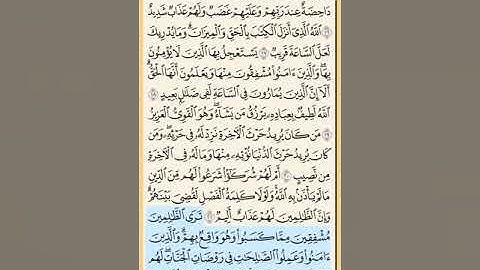 دَاحِضَةٌ عِندَ رَبِّهِمْ وَعَلَيْهِمْ غَضَبٌ وَلَهُمْ عَذَابٌ شَدِيدٌ
١٦ ٱللَّهُ ٱلَّذِىٓ أَنزَلَ ٱلْكِتَٰبَ بِٱلْحَقِّ وَٱلْمِيزَانَ ۗ وَمَا يُدْرِيكَ
لَعَلَّ ٱلسَّاعَةَ قَرِيبٌ ١٧ يَسْتَعْجِلُ بِهَا ٱلَّذِينَ لَا يُؤْمِنُونَ
بِهَا ۖ وَٱلَّذِينَ ءَامَنُوا۟ مُشْفِقُونَ مِنْهَا وَيَعْلَمُونَ أَنَّهَا ٱلْحَقُّ ۗ
أَلَآ إِنَّ ٱلَّذِينَ يُمَارُونَ فِى ٱلسَّاعَةِ لَفِى ضَلَٰلٍۭ بَعِيدٍ ١٨
ٱللَّهُ لَطِيفٌۢ بِعِبَادِهِۦ يَرْزُقُ مَن يَشَآءُ ۖ وَهُوَ ٱلْقَوِىُّ ٱلْعَزِيزُ
١٩ مَن كَانَ يُرِيدُ حَرْثَ ٱلْءَاخِرَةِ نَزِدْ لَهُۥ فِى حَرْثِهِۦ ۖ وَمَن
كَانَ يُرِيدُ حَرْثَ ٱلدُّنْيَا نُؤْتِهِۦ مِنْهَا وَمَا لَهُۥ فِى ٱلْءَاخِرَةِ
مِن نَّصِيبٍ ٢٠ أَمْ لَهُمْ شُرَكَٰٓؤُا۟ شَرَعُوا۟ لَهُم مِّنَ ٱلدِّينِ
مَا لَمْ يَأْذَنۢ بِهِ ٱللَّهُ ۚ وَلَوْلَا كَلِمَةُ ٱلْفَصْلِ لَقُضِىَ بَيْنَهُمْ ۗ
وَإِنَّ ٱلظَّٰلِمِينَ لَهُمْ عَذَابٌ أَلِيمٌ ٢١ تَرَى ٱلظَّٰلِمِينَ
مُشْفِقِينَ مِمَّا كَسَبُوا۟ وَهُوَ وَاقِعٌۢ بِهِمْ ۗ وَٱلَّذِينَ
ءَامَنُوا۟ وَعَمِلُوا۟ ٱلصَّٰلِحَٰتِ فِى رَوْضَاتِ ٱلْجَنَّاتِ ۖ لَهُم